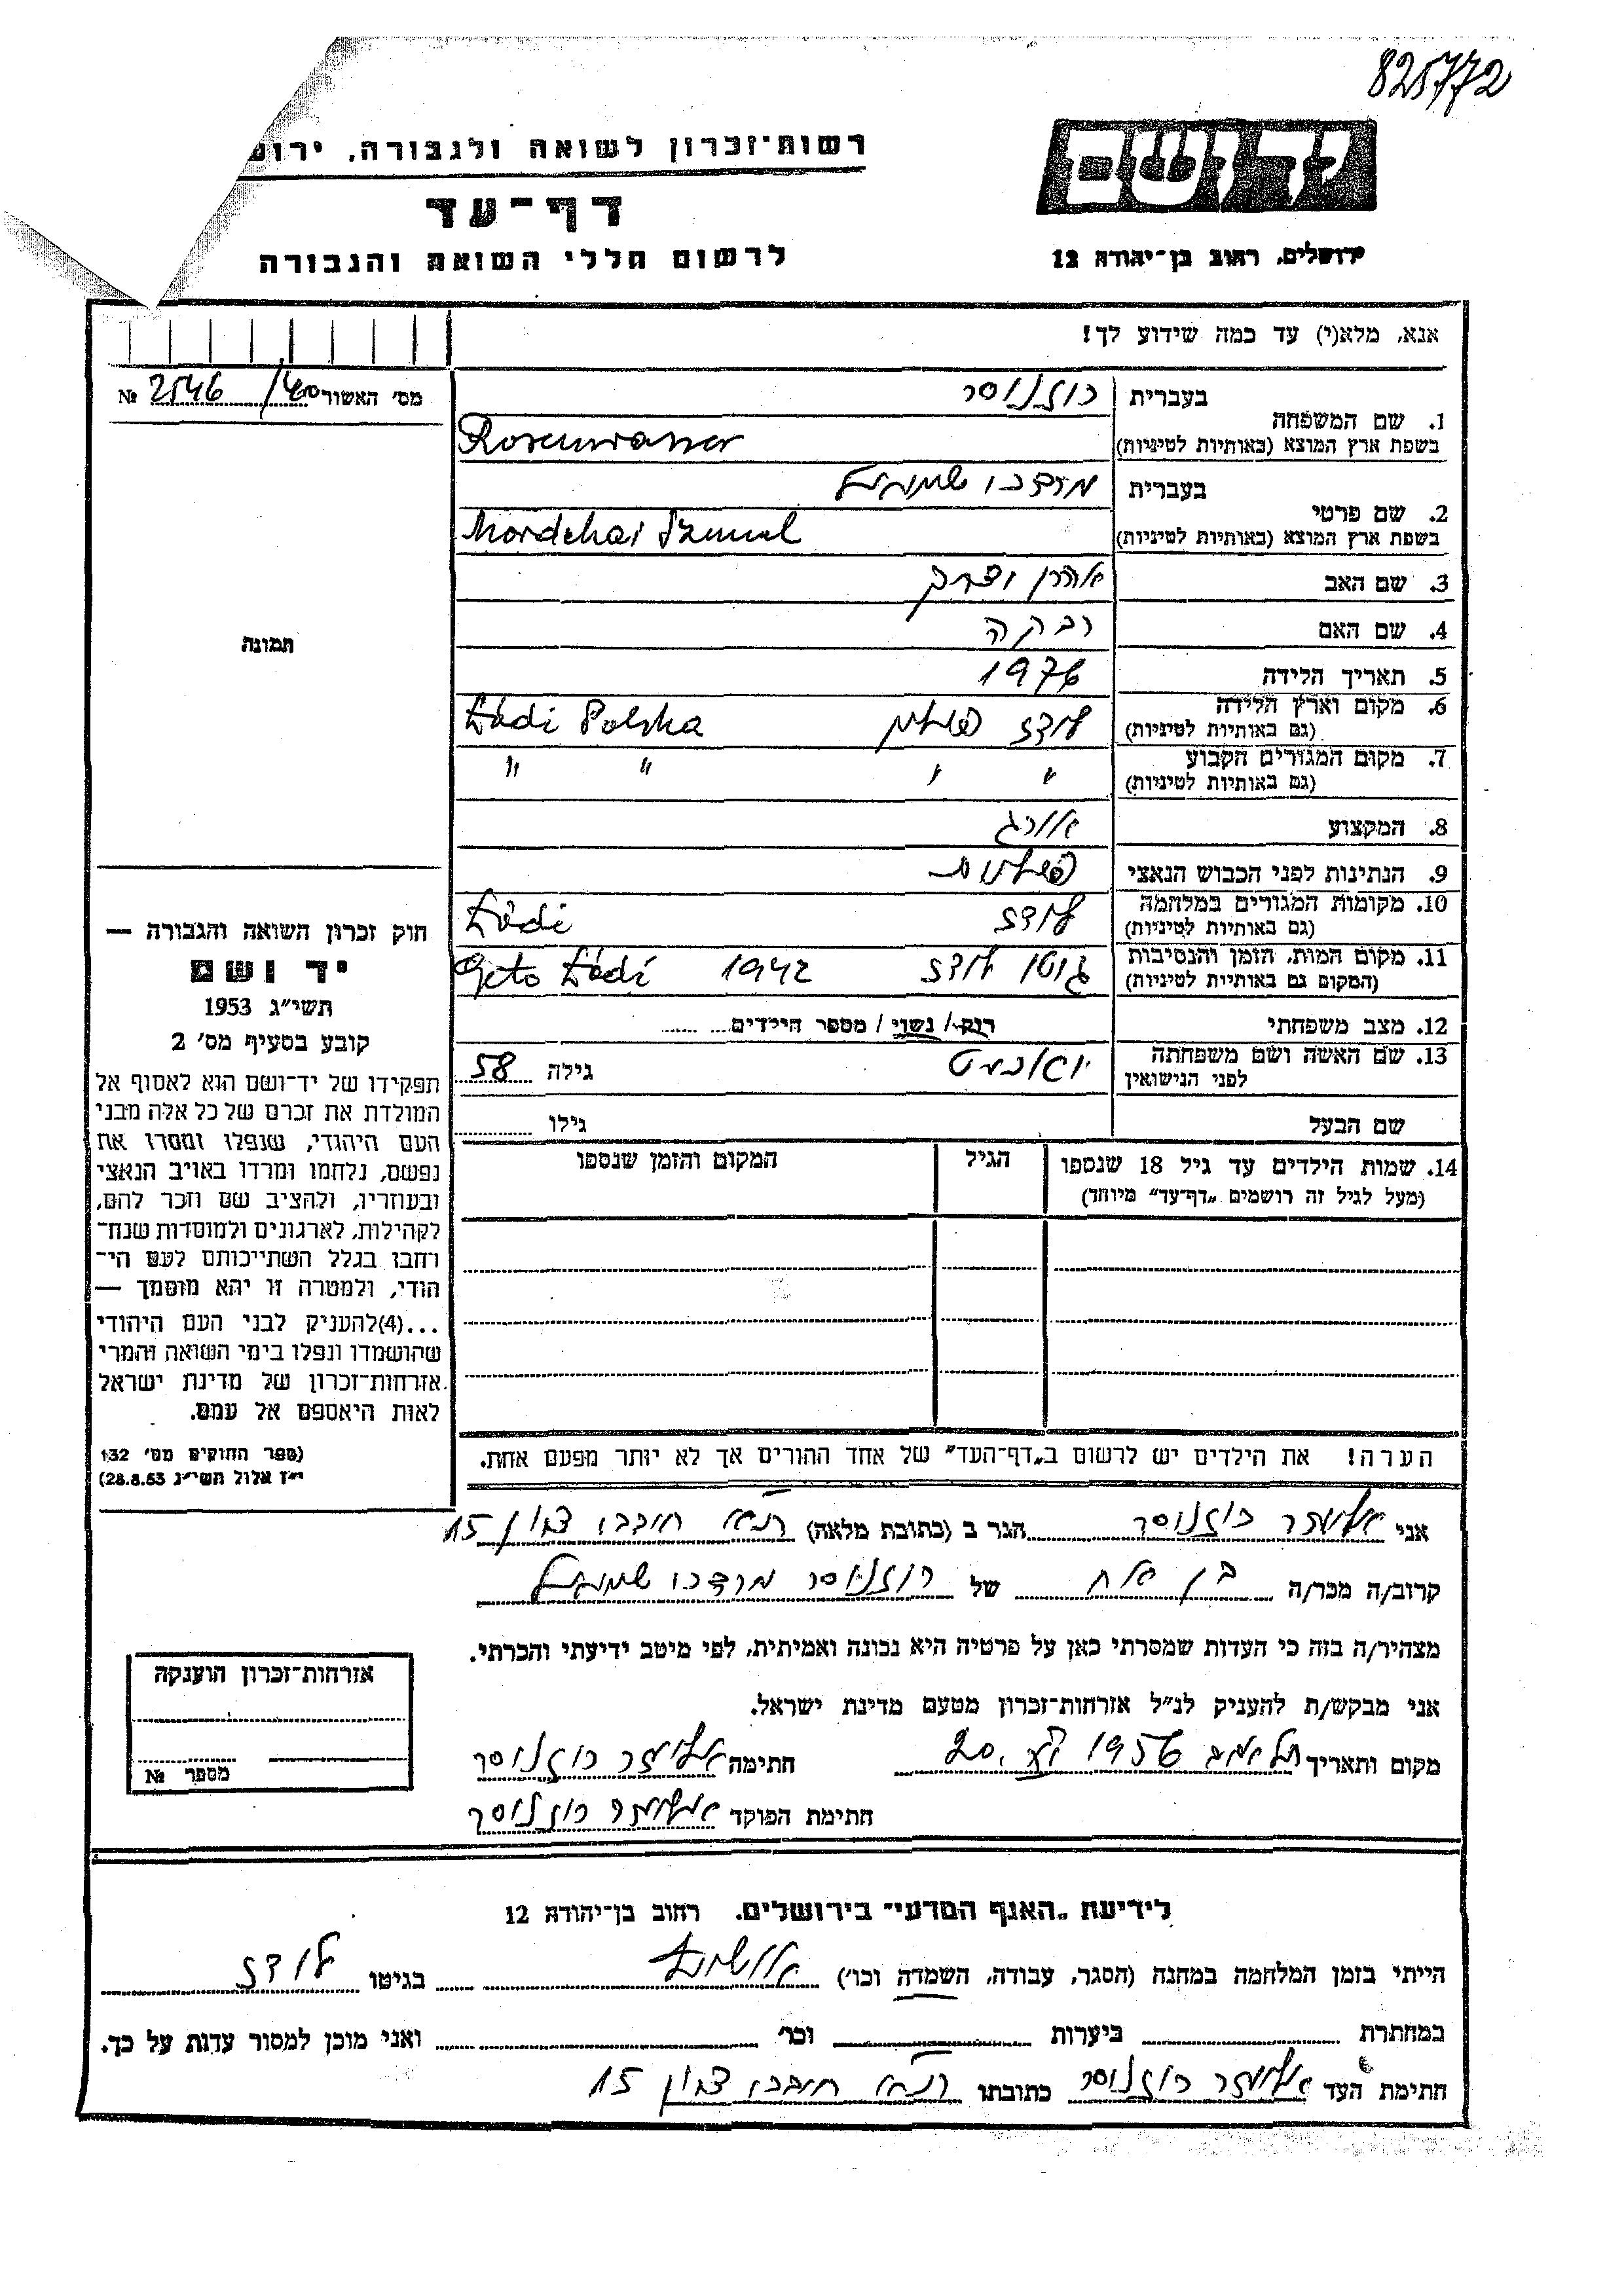 825772
רשות־זכרון לשואה ולגבורה, ירוש
יד ושם
דף־עד
לרשום חללי השואה והגבורה
ירושלים, רחוב בן־יהודה 12
אנא, מלא(י) עד כמה שידוע לך!
מס' האשור 40/ 2546 №
בעברית רוזנוסר
1. שם המשפחה
בשפת ארץ המוצא (באותיות לטיניות) Rosenwasser
בעברית מרדכי שמואל
2. שם פרטי
בשפת ארץ המוצא (באותיות לטיניות) Mordchai Szmul
3. שם האב אהרן
תמונה
4. שם האם רבקה
5. תאריך הלידה
6. מקום וארץ הלידה לודז פולין Łódź Polska
(גם באותיות לטיניות)
7. מקום המגורים הקבוע " " " "
(גם באותיות לטיניות)
8. המקצוע אורג
9. הנתינות לפני הכבוש הנאצי פולנית
10. מקומות המגורים במלחמה לודז Łódź
(גם באותיות לטיניות)
11. מקום המות, הזמן והנסיבות גיטו לודז 1942 Geto Łódź
(המקום גם באותיות לטיניות)
12. מצב משפחתי רוק/ נשוי / מספר הילדים
13. שם האשה ושם משפחתה גילה 58
לפני הנישואין
שם הבעל גילו
14. שמות הילדים עד גיל 18 שנספו הגיל המקום והזמן שנספו
(מעל לגיל זה רושמים „דף־עד" מיוחד)
חוק זכרון השואה והגבורה —
יד ושם
תשי"ג 1953
קובע בסעיף מס' 2
תפקידו של יד־ושם הוא לאסוף אל
המולדת את זכרם של כל אלה מבני
העם היהודי, שנפלו ומסרו את
נפשם, נלחמו ומרדו באויב הנאצי
ובעוזריו, ולהציב שם וזכר להם,
לקהילות, לארגונים ולמוסדות שנח־
רחבו בגלל השתייכותם לעם הי־
הודי, ולמטרה זו יהא מוסמך —
...(4)להעניק לבני העם היהודי
שהושמדו ונפלו בימי השואה והמרי
אזרחות־זכרון של מדינת ישראל
לאות היאספם אל עמם.
(ספר החוקים מס' 132
י"ז אלול תשי"ג 28.8.53)
הערה! את הילדים יש לרשום ב„דף־העד" של אחד ההורים אך לא יותר מפעם אחת.
אני אליעזר רוזנוסר הגר ב (כתובת מלאה) ת"א חובבי ציון 15
קרוב/ה מכר/ה בן אח של רוזנוסר מרדכי שמואל
מצהיר/ה בזה כי העדות שמסרתי כאן על פרטיה היא נכונה ואמיתית, לפי מיטב ידיעתי והכרתי.
אני מבקש/ת להעניק לנ"ל אזרחות־זכרון מטעם מדינת ישראל.
מקום ותאריך תל אביב 1956 חתימה אליעזר רוזנוסר
חתימת הפוקד אליעזר רוזנוסר
אזרחות־זכרון הוענקה
מספר №
לידיעת „האגף המדעי" בירושלים. רחוב בן־יהודה 12
הייתי בזמן המלחמה במחנה (הסגר, עבודה, השמדה וכו') אושויץ בגיטו לודז
במחתרת ביערות וכו' ואני מוכן למסור עדות על כך.
חתימת העד אליעזר רוזנוסר כתובתו ת"א חובבי ציון 15